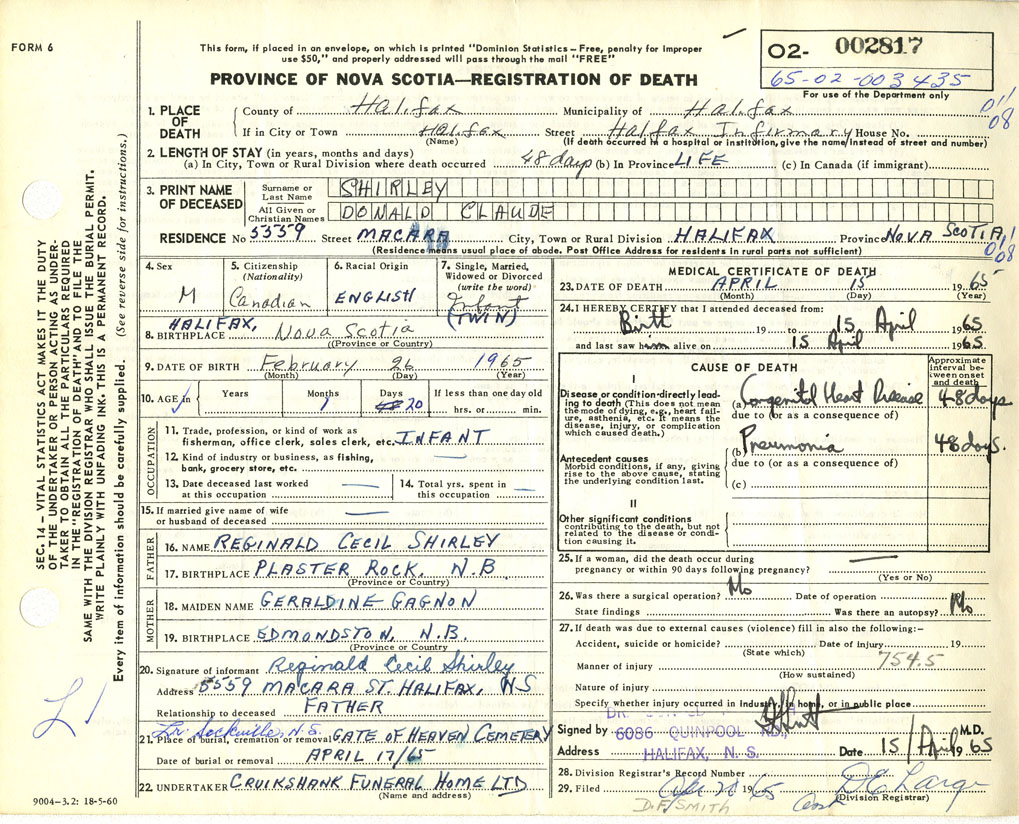 FORM 6
This form, if placed in an envelope, on which is printed "Dominion Statistics – Free, penalty for improper
use $50," and properly addressed will pass through the mail "FREE"
PROVINCE OF NOVA SCOTIA—REGISTRATION OF DEATH
02- 002817
65-02-003435
For use of the Department only
011
08
1. PLACE OF DEATH
County of Halifax Municipality of Halifax
If in City or Town Halifax Street Halifax Infirmary House No.
(Name) (If death occurred in a hospital or institution, give the name instead of street and number)
2. LENGTH OF STAY (in years, months and days)
(a) In City, Town or Rural Division where death occurred 48 days (b) In Province LIFE (c) In Canada (if immigrant)
3. PRINT NAME OF DECEASED
Surname or Last Name SHIRLEY
All Given or Christian Names DONALD CLAUDE
RESIDENCE No 5559 Street MACARA City, Town or Rural Division HALIFAX Province NOVA SCOTIA
(Residence means usual place of abode. Post Office Address for residents in rural parts not sufficient)
08
4. Sex
M
5. Citizenship
(Nationality)
Canadian
6. Racial Origin
ENGLISH
7. Single, Married,
Widowed or Divorced
(write the word)
Infant
(TWIN)
8. BIRTHPLACE HALIFAX, Nova Scotia
(Province or Country)
9. DATE OF BIRTH February 26 1965
(Month) (Day) (Year)
10. AGE in Years Months Days If less than one day old
1 20 hrs. or min.
OCCUPATION
11. Trade, profession, or kind of work as
fisherman, office clerk, sales clerk, etc. INFANT
12. Kind of industry or business, as fishing,
bank, grocery store, etc. —
13. Date deceased last worked
at this occupation —
14. Total yrs. spent in
this occupation —
15. If married give name of wife
or husband of deceased —
FATHER
16. NAME REGINALD CECIL SHIRLEY
17. BIRTHPLACE PLASTER ROCK, N.B.
(Province or Country)
MOTHER
18. MAIDEN NAME GERALDINE GAGNON
19. BIRTHPLACE EDMONDSTON, N.B.
(Province or Country)
20. Signature of informant Reginald Cecil Shirley
Address 5559 MACARA ST. HALIFAX, NS
Relationship to deceased FATHER
Lr. Sackville, N.S.
21. Place of burial, cremation or removal GATE OF HEAVEN CEMETERY
Date of burial or removal APRIL 17/65
22. UNDERTAKER CRUIKSHANK FUNERAL HOME LTD
(Name and address)
9004-3.2: 18-5-60
MEDICAL CERTIFICATE OF DEATH
23. DATE OF DEATH APRIL 15 1965
(Month) (Day) (Year)
24. I HEREBY CERTIFY that I attended deceased from:
Birth 19 to 15 April 1965
and last saw him alive on 15 April 1965
CAUSE OF DEATH
Approximate interval between onset and death
I
Disease or condition directly leading to death (This does not mean the mode of dying, e.g., heart failure, asthenia, etc. It means the disease, injury, or complication which caused death.)
(a) Congenital Heart Disease 48 days
due to (or as a consequence of)
(b) Pneumonia 48 days.
Antecedent causes
Morbid conditions, if any, giving rise to the above cause, stating the underlying condition last.
due to (or as a consequence of)
(c)
II
Other significant conditions
contributing to the death, but not related to the disease or condition causing it.
25. If a woman, did the death occur during
pregnancy or within 90 days following pregnancy? —
(Yes or No)
26. Was there a surgical operation? No Date of operation
State findings Was there an autopsy? No
27. If death was due to external causes (violence) fill in also the following:–
Accident, suicide or homicide? Date of injury 19
(State which) 754.5
Manner of injury
(How sustained)
Nature of injury
Specify whether injury occurred in Industry, in home, or in public place
DR.
Signed by M.D.
6086 QUINPOOL RD.,
Address HALIFAX, N. S. Date 15/April 1965
28. Division Registrar's Record Number
29. Filed 1965
(Division Registrar)
D.F. SMITH
SEC. 14 – VITAL STATISTICS ACT MAKES IT THE DUTY
OF THE UNDERTAKER OR PERSON ACTING AS UNDERTAKER TO OBTAIN ALL THE PARTICULARS REQUIRED
IN THE "REGISTRATION OF DEATH" AND TO FILE THE
SAME WITH THE DIVISION REGISTRAR WHO SHALL ISSUE THE BURIAL PERMIT.
WRITE PLAINLY WITH UNFADING INK. THIS IS A PERMANENT RECORD.
Every item of information should be carefully supplied. (See reverse side for instructions.)